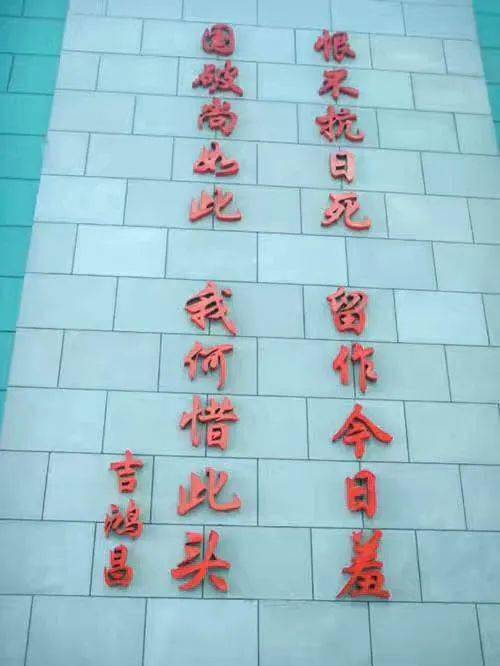 恨不抗日死
留作今日羞
国破尚如此
我何惜此头
吉鸿昌